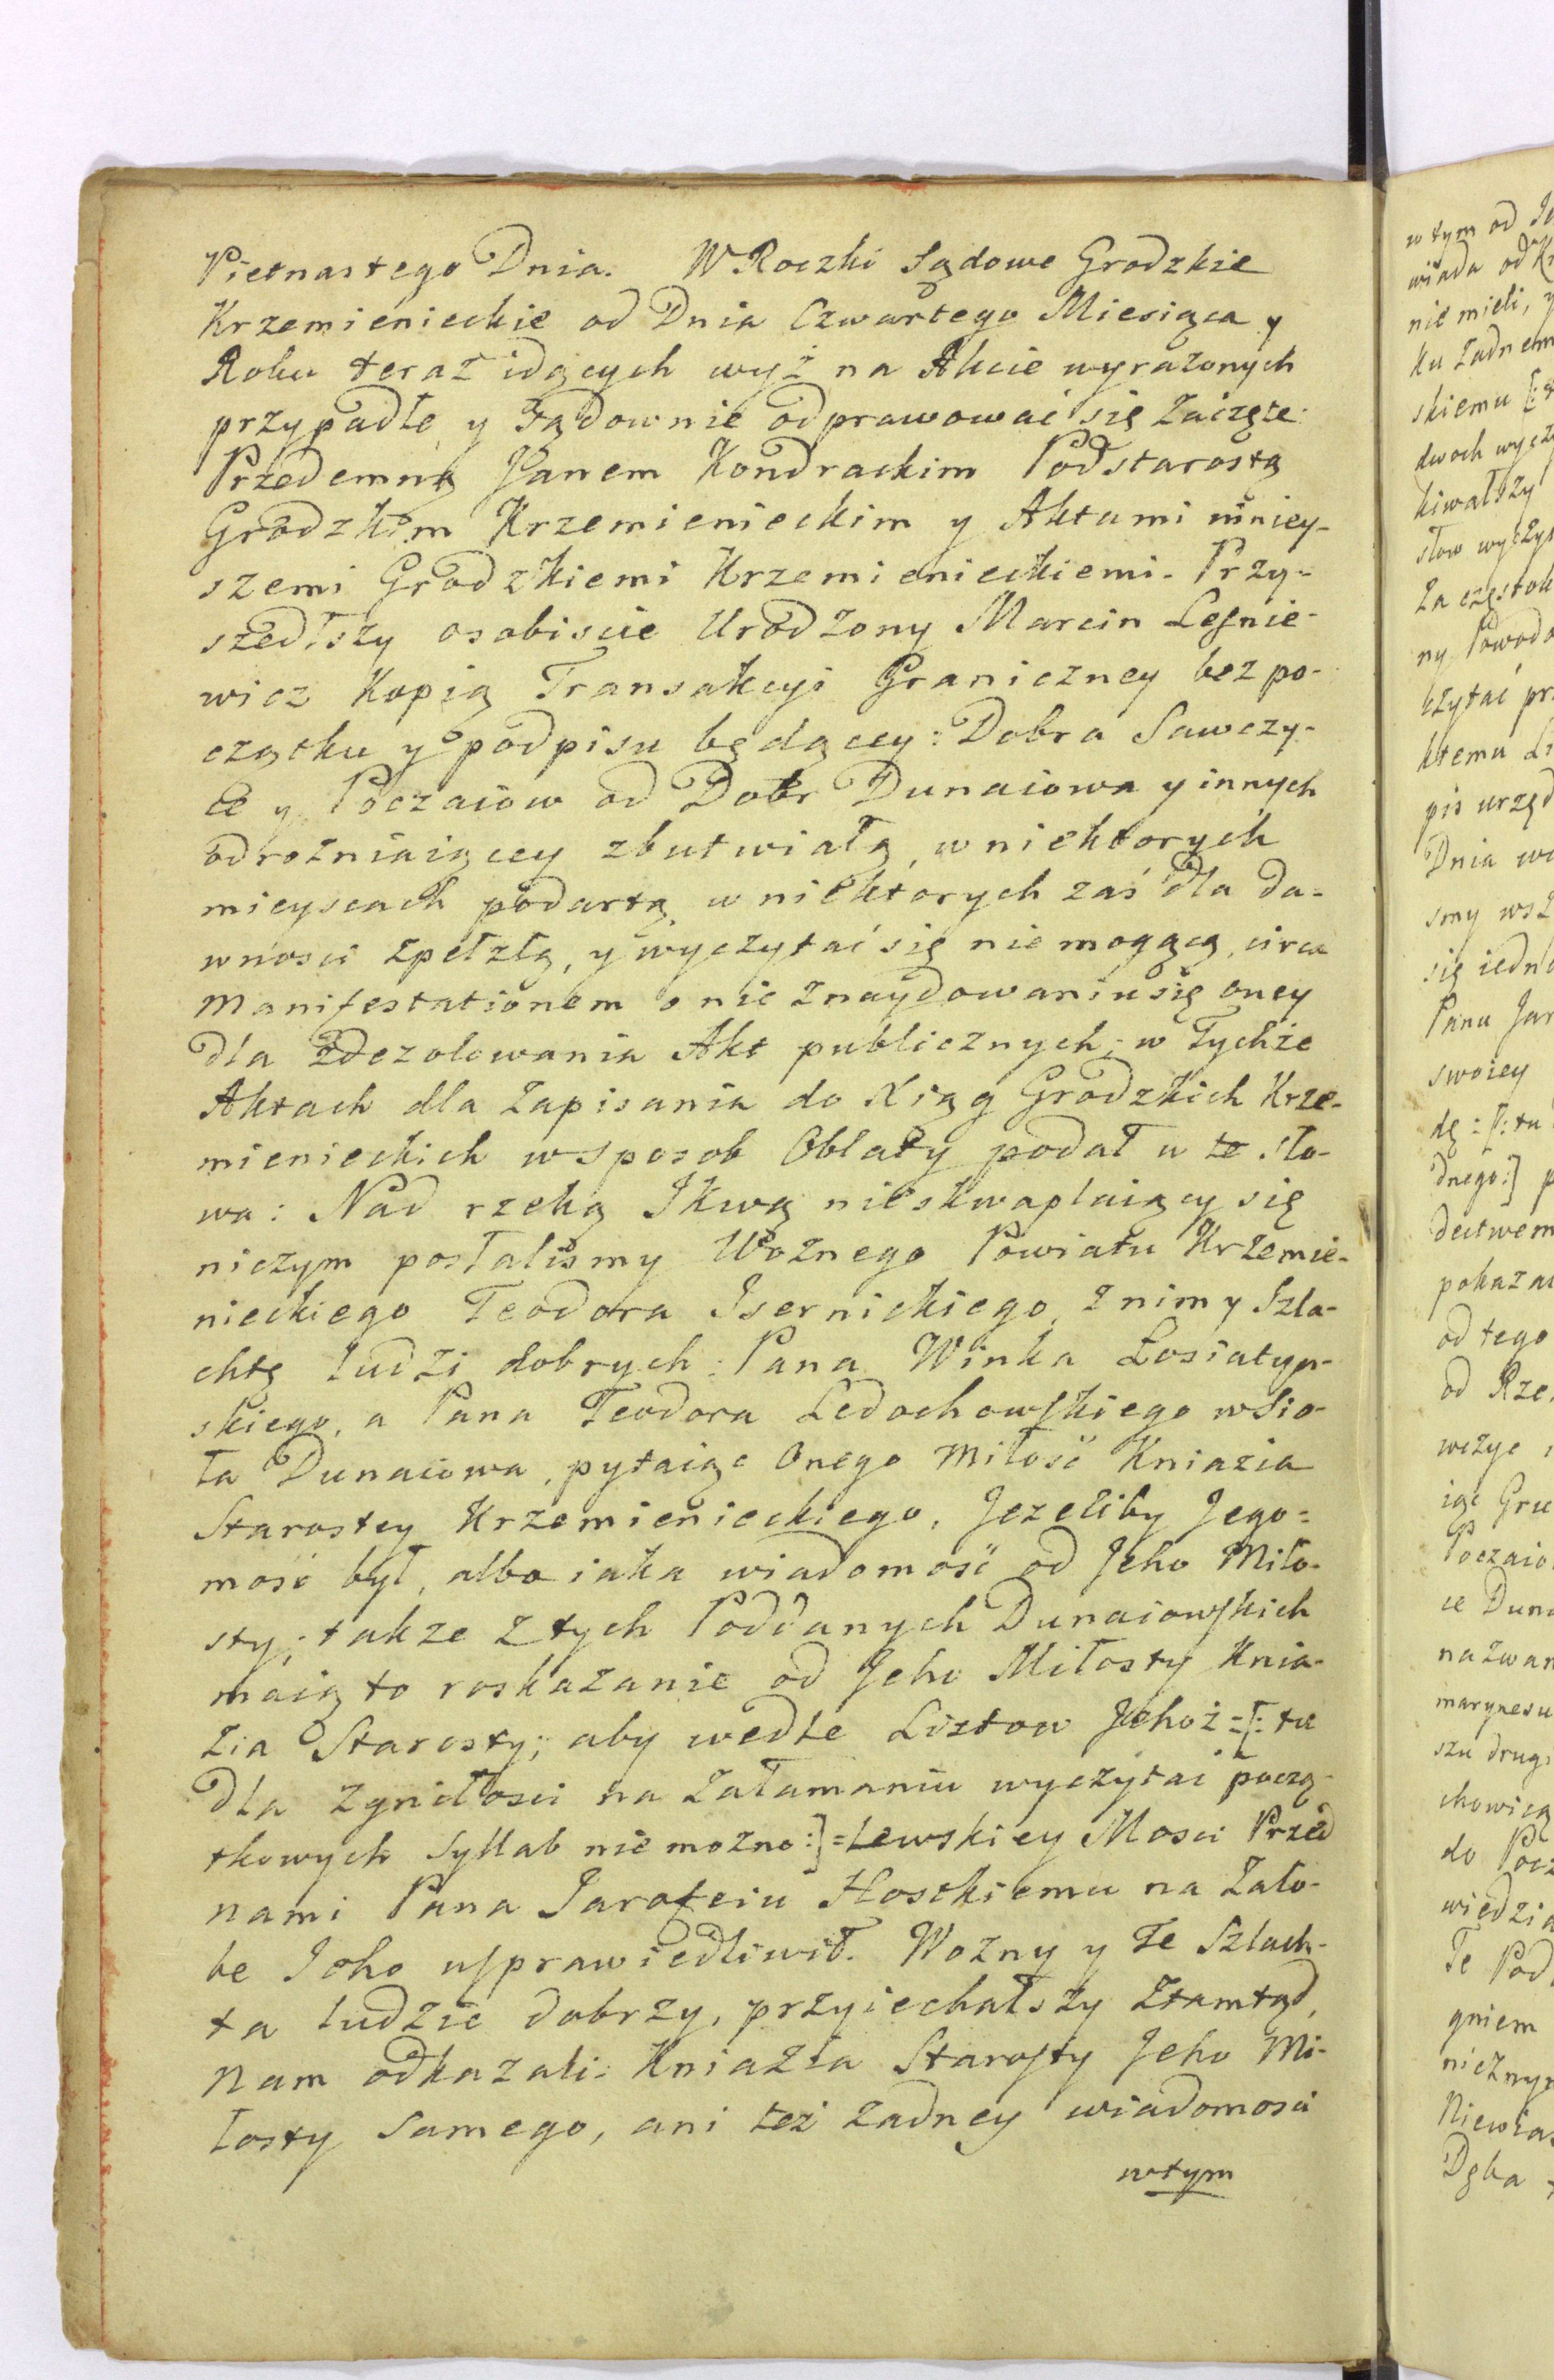 Pietnastego Dnia. W Roczki Sądowe Grodzkie
Krzemienieckie od Dnia Czwartego Miesiąca y
Roku teraz idących wyż na Akcie wyrażonych
przypadłe y Sądownie odprawować się zaczęte.
Przedemną Janem Kondrackim Podstarostą
Grodzkim Krzemienieckim y Aktami niniey-
szemi Grodzkiemi Krzemienieckiemi. Przy-
szedłszy osobiscie Urodzony Marcin Leśnie-
wicz Kopią Transakcyi Graniczney bez po-
czątku y podpisu będącey: Dobra Sawczy-
ce y Poczaiow od Dobr Dunaiowa y innych
odrożniaiącey zbutwiałą, w niektorych
mieyscach podartą, w niektorych zaś dla da-
wnosci zpełzłą, y wyczytać się nie mogącą, circa
Manifestationem o nie znaydowaniu się oney
dla zdezolowania Akt publicznych; w Tychże
Aktach dla zapisania do Xiąg Grodzkich Krze-
mienieckich w sposob Oblaty podał w te sło-
wa: Nad rzeką Ikwą nieskwaplaiący się
niczym posłaliśmy Woznego Powiatu Krzemie-
nieckiego Teodora Isernickiego, z nim y Szla-
chtę ludzi dobrych: Pana Winka Łosiatyn-
skiego, a Pana Teodora Ledochowskiego w Sio-
ła Dunaiowa, pytaiąc Onego Miłość Kniazia
Starostey Krzemienieckiego, Jezeliby Jego=
mość był, albo iaka wiadomość od Jeho Miło-
sty; takze z tych Poddanych Dunaiowskich
maią to roskazanie od Jeho Miłosty Knia-
zia Starosty; aby wedle Listow Jehoż=[: tu
dla zgniłosci na załamaniu wyczytać począ-
tkowych Syllab nie mozno:]=Lewskiey Mosci Przed
nami Pana Jarofeiu Hostkiemu na Zało-
be Joho usprawiedliwił. Wozny y Te Szlach-
ta ludzie dobrzy, przyiechałszy ztamtąd,
Nam odkazali: Kniazia Starosty Jeho Mi-
łosty Samego, ani też zadney wiadomosci
wtym